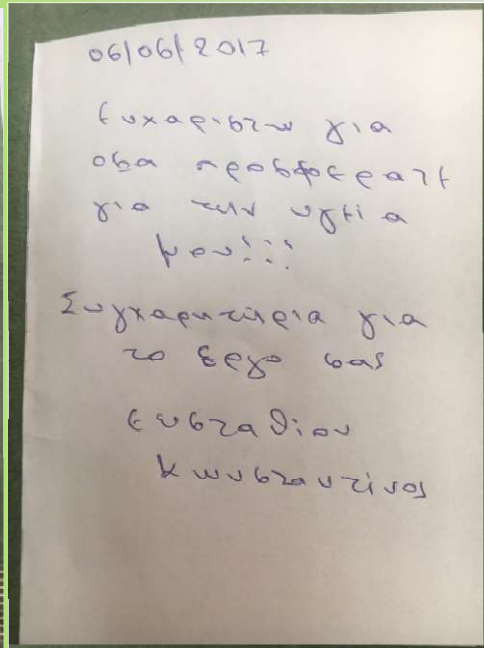 06/06/2017
Ευχαριστω για
οσα προσφερατε
για την υγεία
μου!!!
Συγχαρητήρια για
το έργο σας
Ευσταθίου
Κωνσταντίνος